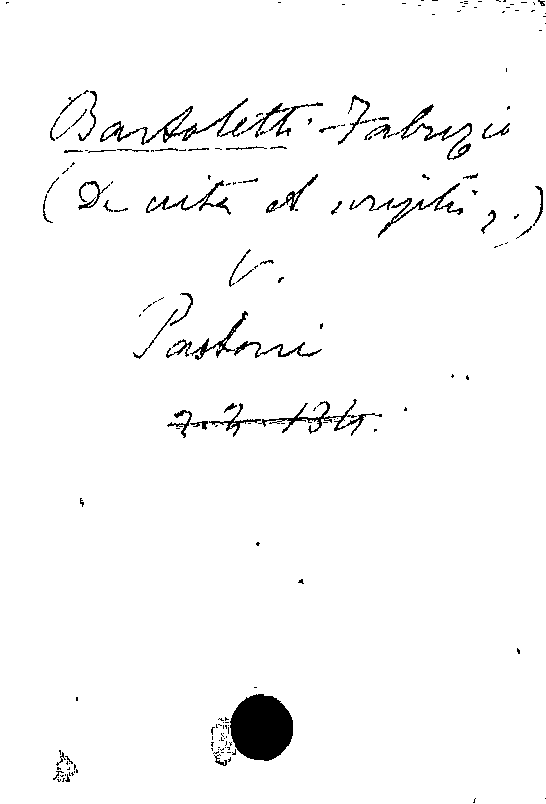 Bartoletti Fabrizio
(De vita et scriptis,)
V.
Pastorri
2. 2. 134.